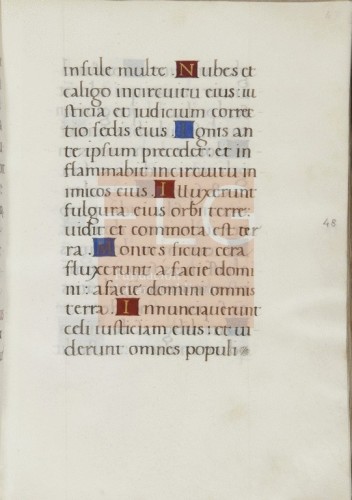 insule multe. Nubes et
caligo in circuitu eius: iu
sticia et iudicium corre
tio sedis eius. Ignis an
te ipsum precedet: et in
flammabit in circuitu in
imicos eius. Illuxerunt
fulgura eius orbi terre:
uidit et commota est ter
ra. Montes sicut cera
fluxerunt a facie domi
ni: a facie domini omnis
terra. Innunciauerunt
celi iusticiam eius: et ui
derunt omnes populi
48
FLG